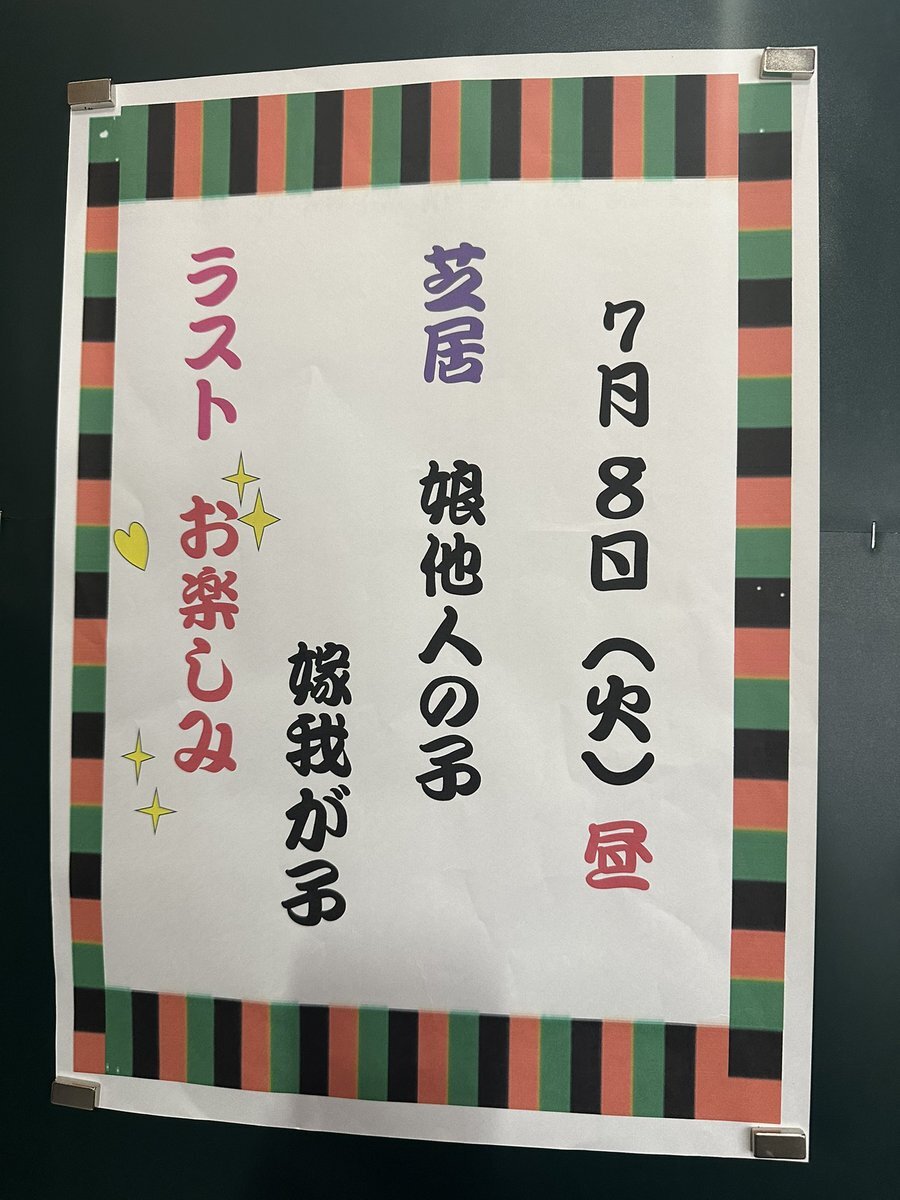 7月8日（火）昼
芝居 娘他人の子
嫁我が子
ラスト お楽しみ